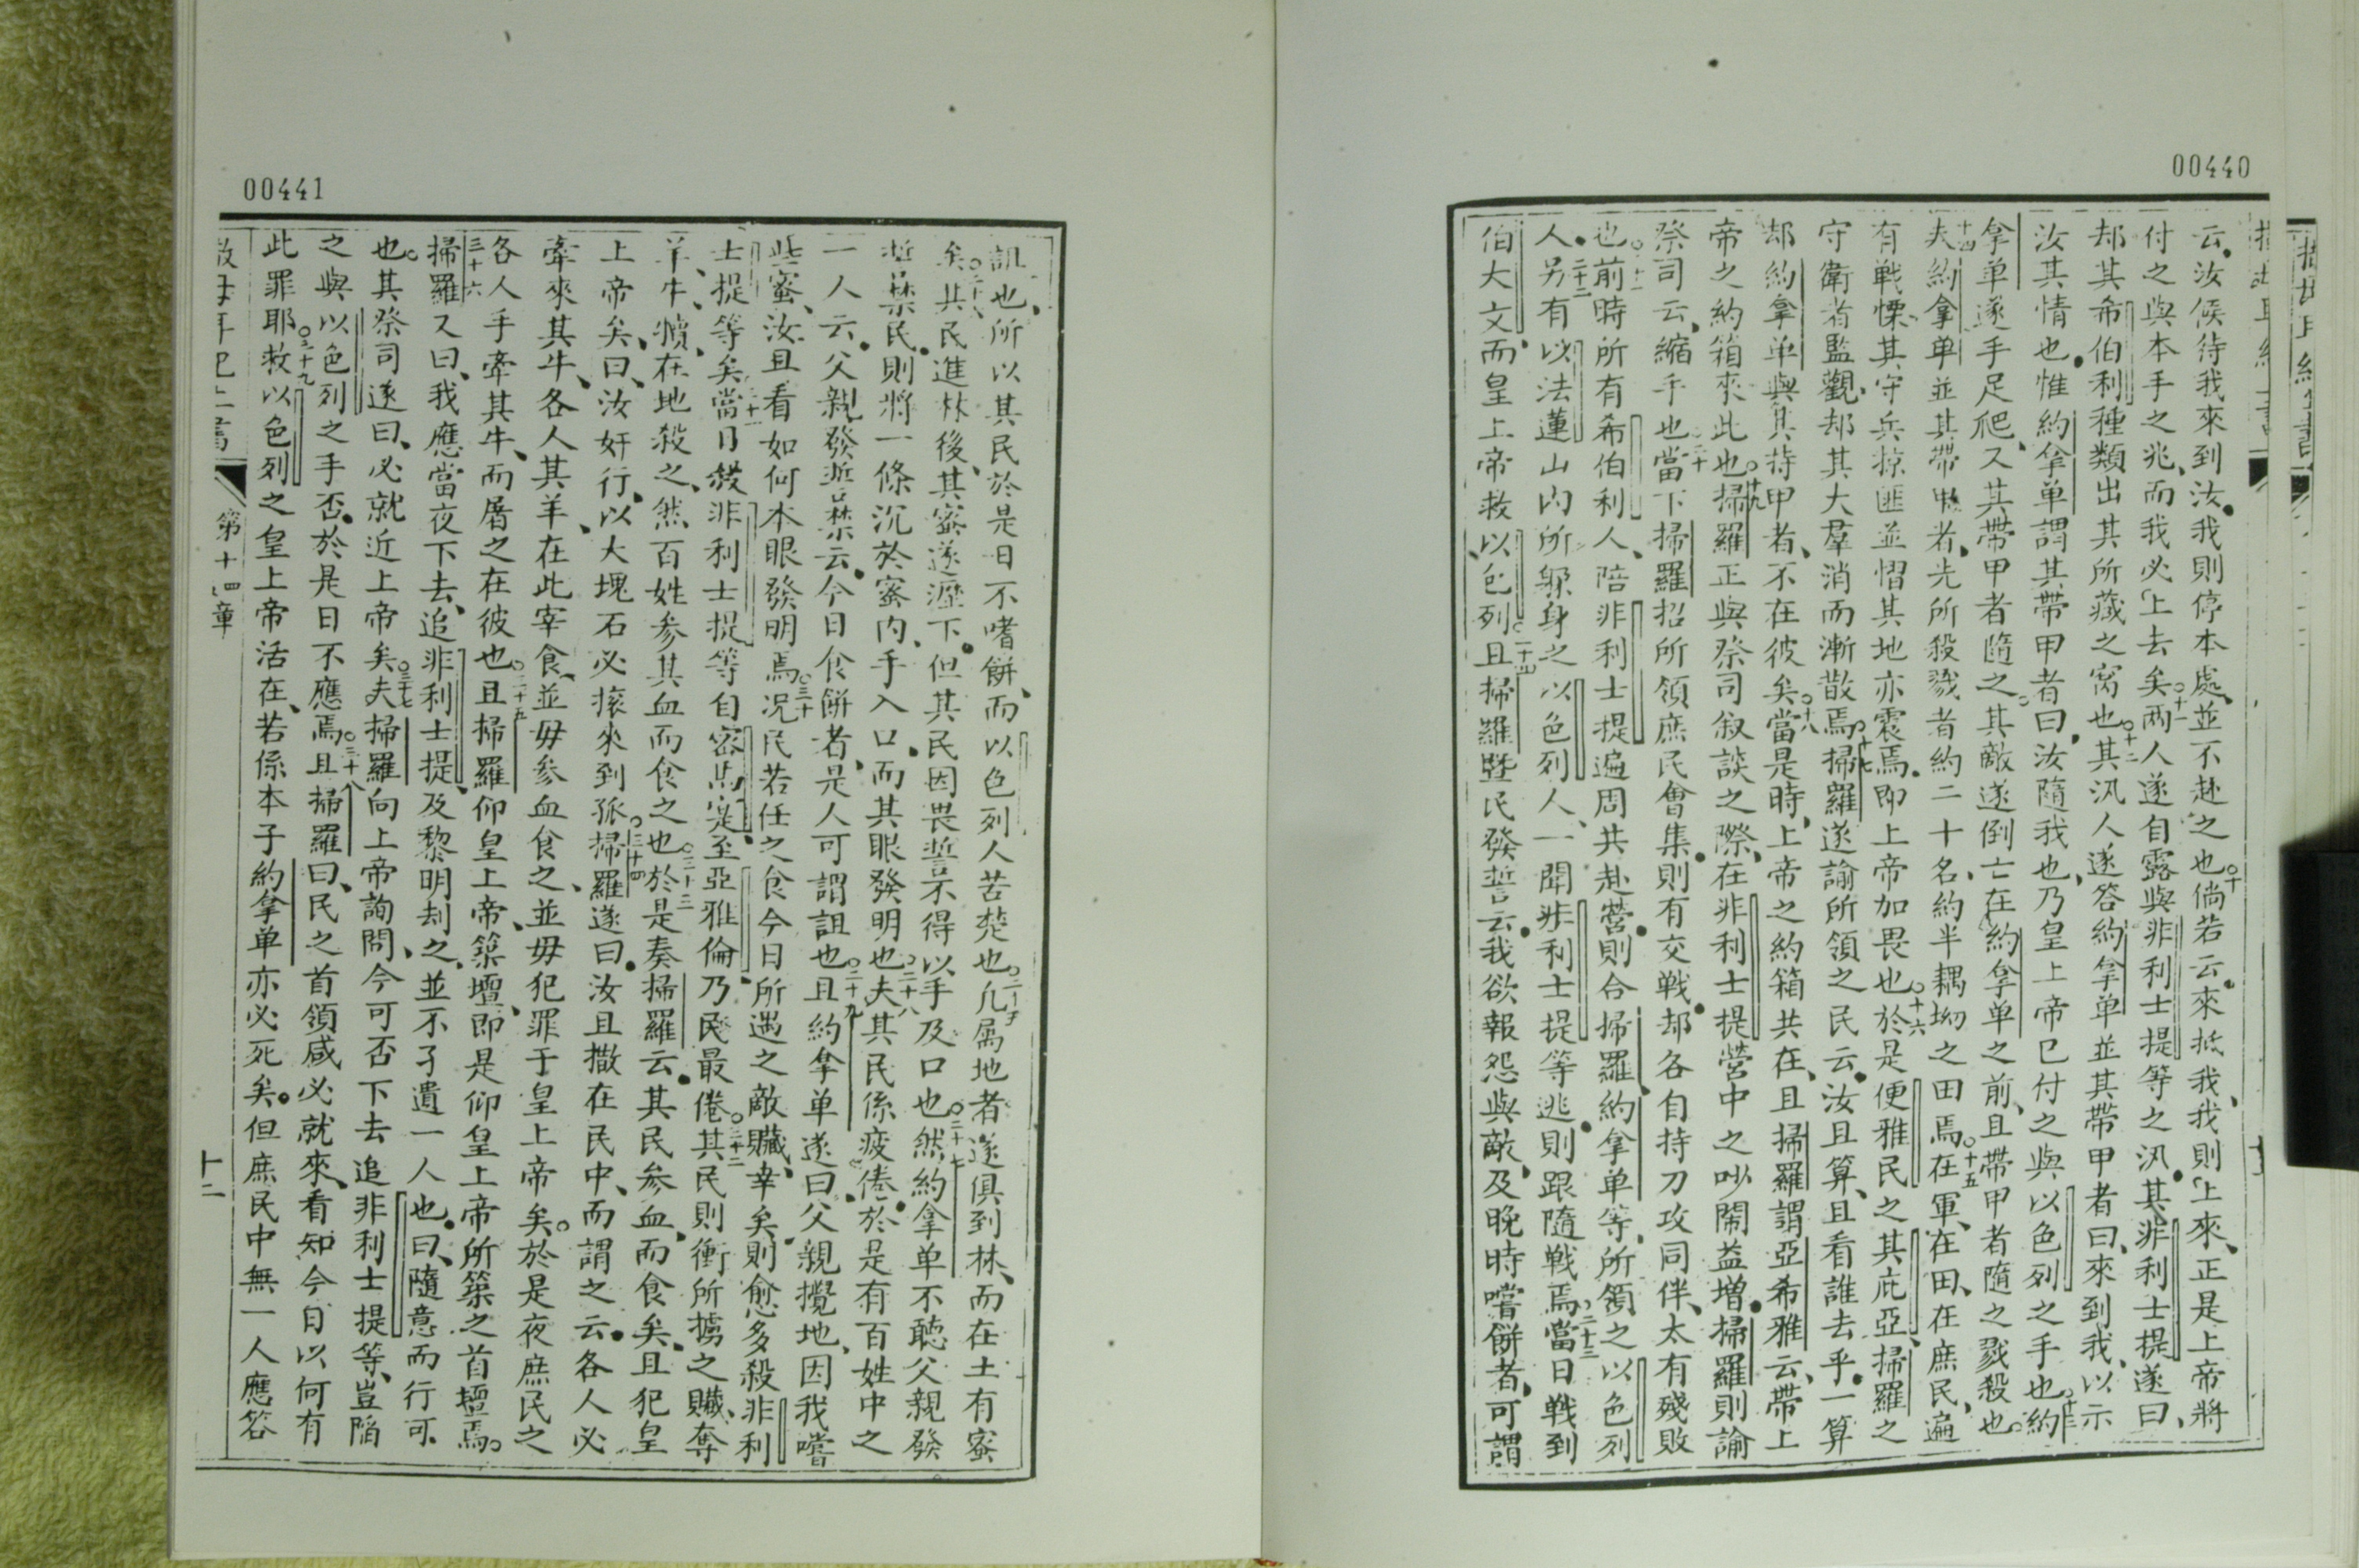 00440
云汝候待我來到汝我則停本處並不赴之也十倘若云來抵我我則上來正是上帝將
付之與本手之兆而我必上去矣十一兩人遂自露與非利士提等之汛其非利士提遂曰
却其希伯利種類出其所藏之窩也十二其汛人遂答約拿单並其帶甲者曰來到我以示
汝其情也惟約拿单謂其帶甲者曰汝隨我也乃皇上帝已付之與以色列之手也十三約
拿单遂手足爬又其帶甲者隨之其敵遂倒亡在約拿单之前且帶甲者隨之戮殺也
十四夫約拿单並其帶甲者先所殺戮者約二十名約半耦坳之田焉十五在軍在田在庶民遍
有戰慄其守兵掠匪並慴其地亦震焉即上帝加畏也十六於是便雅民之其庇亞掃羅之
守衛者監觀却其大羣消而漸散焉十七掃羅遂諭所領之民云汝且算且看誰去乎一算
却約拿单與其持甲者不在彼矣十八當是時上帝之約箱共在且掃羅謂亞希雅云帶上
帝之約箱來此也十九掃羅正與祭司叙談之際在非利士提營中之吵鬧益增掃羅則諭
祭司云縮手也二十當下掃羅招所領庶民會集則有交戰却各自持刀攻同伴太有殘敗
也前時所有希伯利人陪非利士提遍周共赴營則合掃羅約拿单等所領之以色列
人二十二另有以法蓮山內所躲身之以色列人一聞非利士提等逃則跟隨戰焉二十三當日戰到
伯大文而皇上帝救以色列二十四且掃羅曁民發誓云我欲報怨與敵及晚時嚐餅者可謂
00441
詛也所以其民於是日不嗜餅而以色列人苦楚也二十五凡属地者遂俱到林而在土有蜜
矣二十六其民進林後其蜜遂瀝下但其民因畏誓不得以手及口也二十七然約拿单不聽父親發
誓禁民則將一條沉於蜜內手入口而其眼發明也二十八夫其民係疲倦於是有百姓中之
一人云父親發誓禁云今日食餅者是人可謂詛也二十九且約拿单遂曰父親攪地因我嚐
些蜜汝且看如何本眼發明焉三十況民若任之食今日所遇之敵贓幸矣則愈多殺非利
士提等矣三十一當日殺非利士提等自密馬寔至亞雅倫乃民最倦三十二其民則衝所擄之贓奪
羊牛犢在地殺之然百姓参其血而食之也三十三於是奏掃羅云其民参血而食矣且犯皇
上帝矣曰汝奸行以大塊石必滾來到孤三十四掃羅遂曰汝且撒在民中而謂之云各人必
牽來其牛各人其羊在此宰食並毋参血食之並毋犯罪于皇上帝矣於是夜庶民之
各人手牽其牛而屠之在彼也三十五且掃羅仰皇上帝築壇即是仰皇上帝所築之首壇焉
三十六掃羅又曰我應當夜下去追非利士提及黎明刦之並不孑遺一人也曰隨意而行可
也其祭司遂曰必就近上帝矣三十七夫掃羅向上帝詢問今可否下去追非利士提等豈陷
之與以色列之手否於是日不應焉三十八且掃羅曰民之首領咸必就來看知今日以何有
此罪耶三十九救以色列之皇上帝活在若係本子約拿单亦必死矣但庶民中無一人應答
第十四章
十二